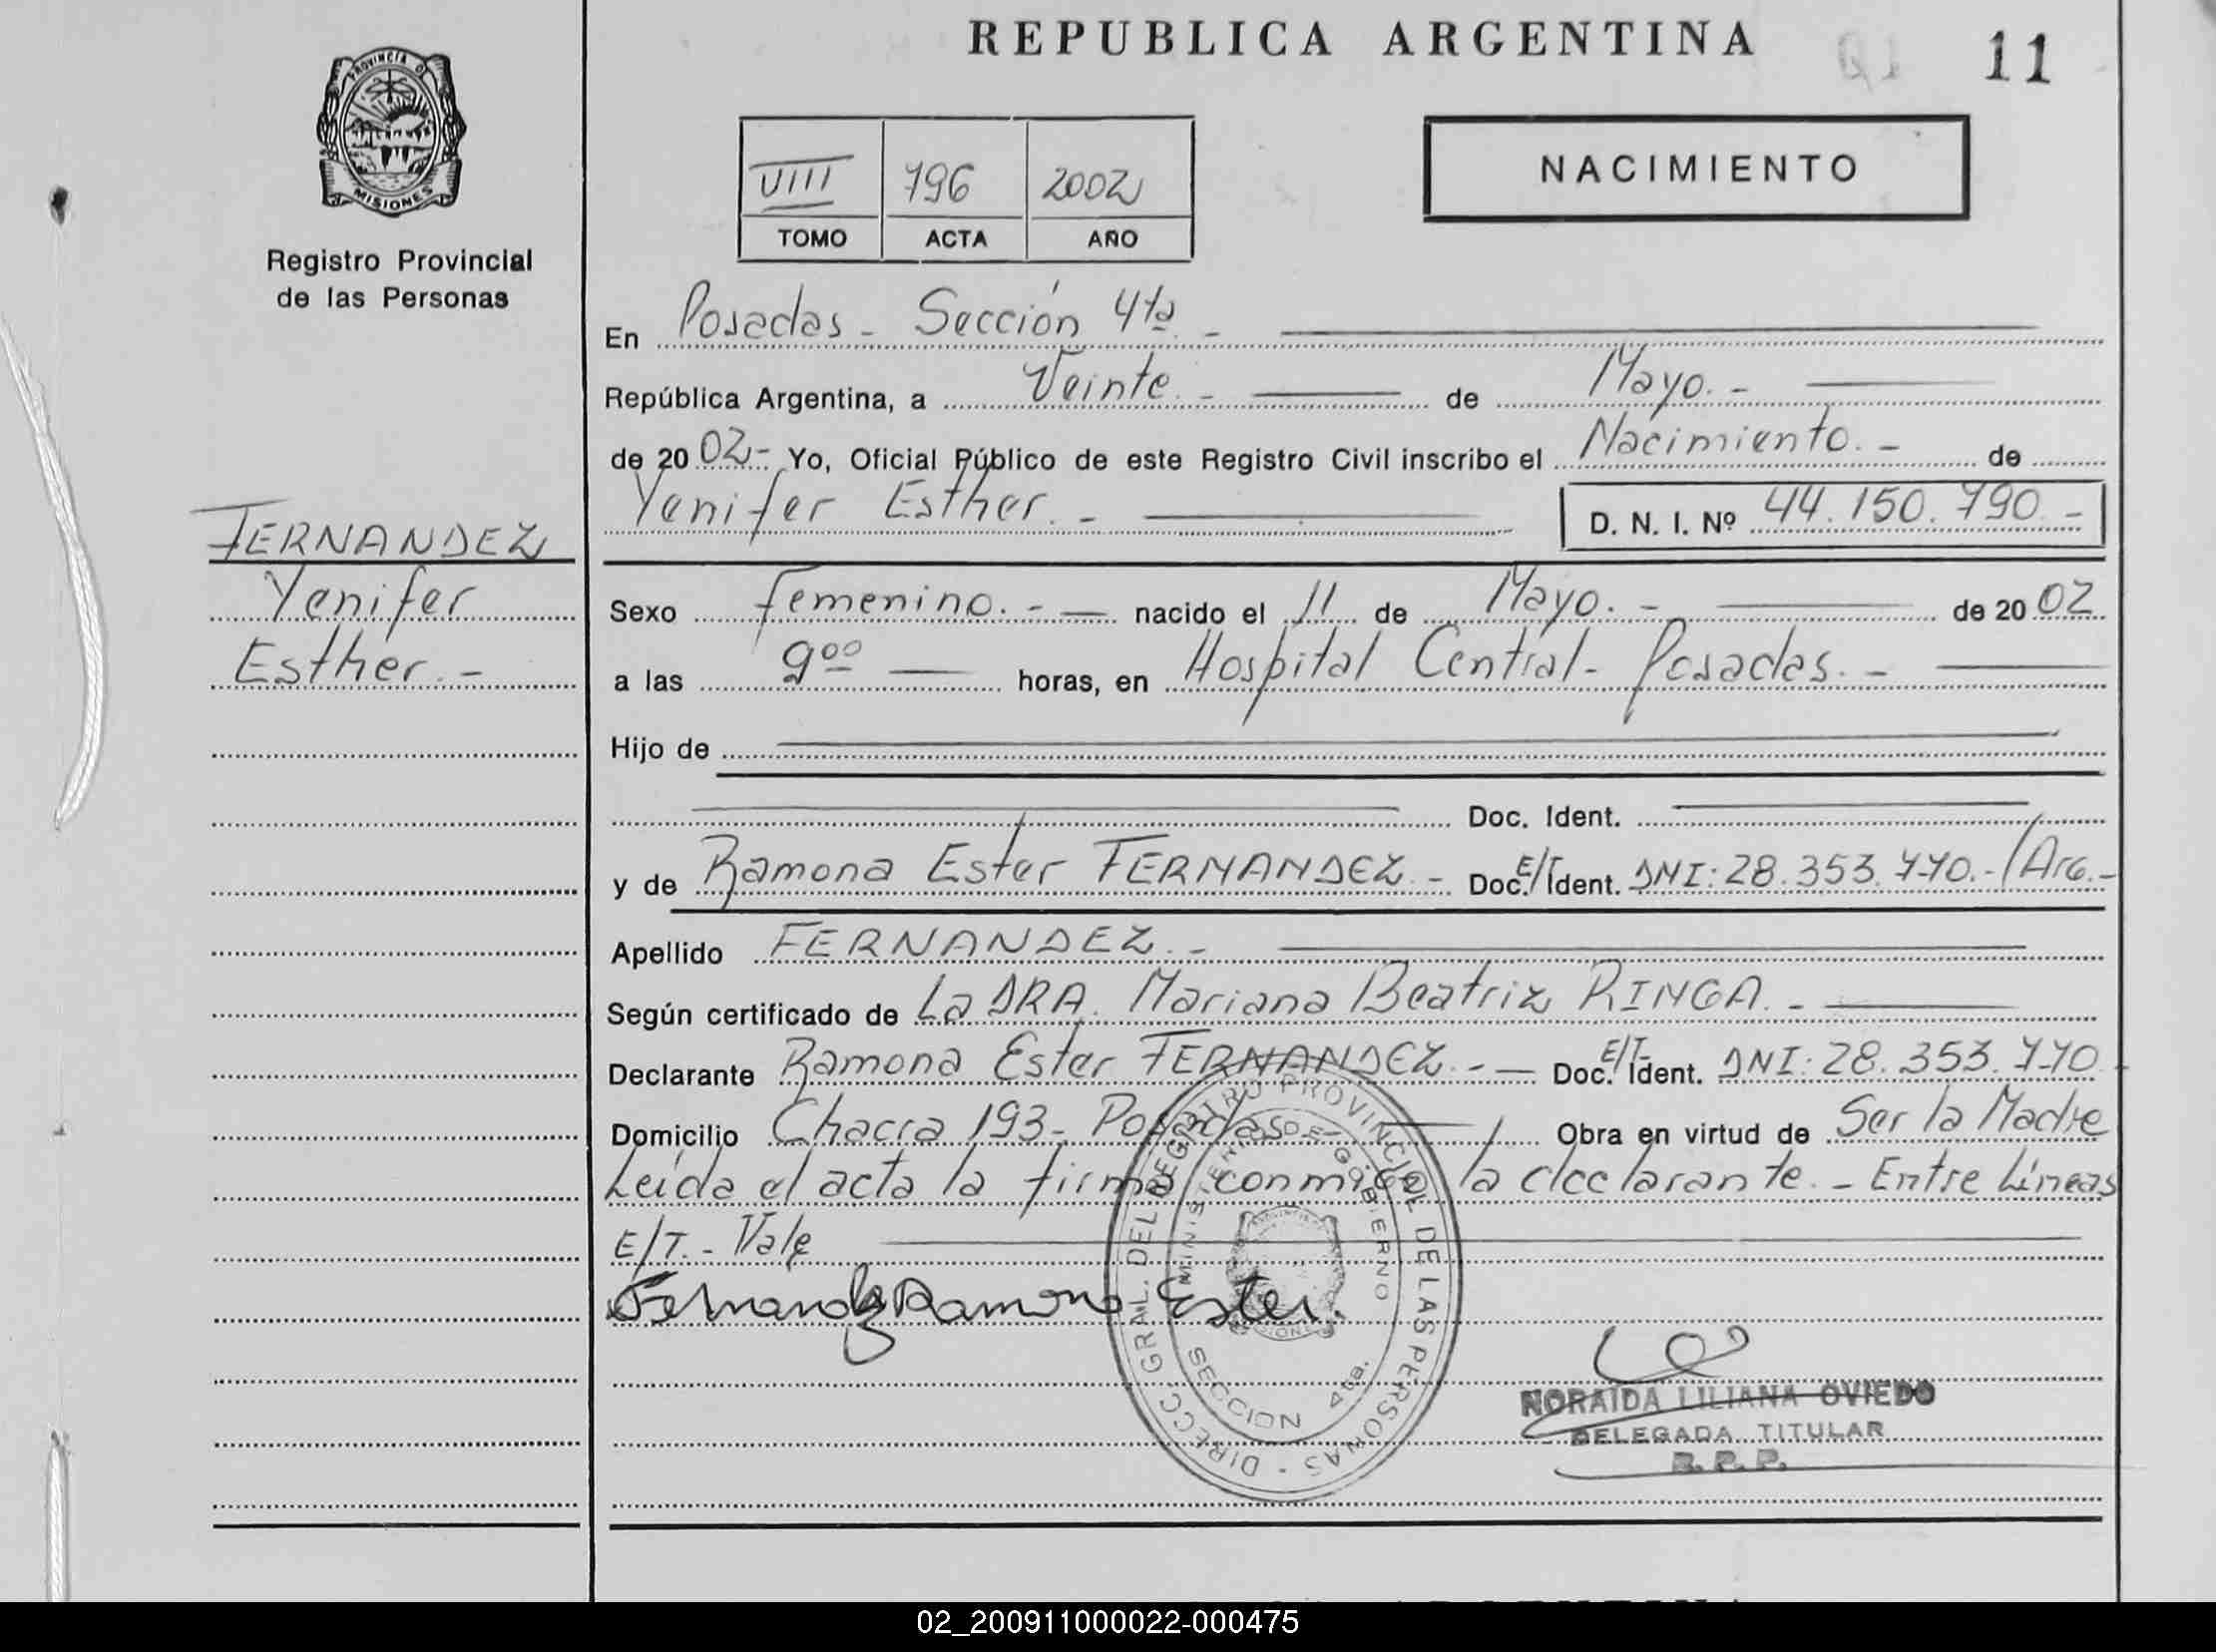 REPUBLICA ARGENTINA
11
PROVINCIA D
MISIONES
Registro Provincial
de las Personas
VIII 796 2002
TOMO ACTA AÑO
NACIMIENTO
En Posadas - Sección 4ta -
República Argentina, a Veinte. - de Mayo. -
de 2002- Yo, Oficial Público de este Registro Civil inscribo el Nacimiento. - de
Yenifer Esther. - D. N. I. Nº 44.150.790 -
FERNANDEZ
Yenifer
Esther. -
Sexo femenino. - nacido el 11 de Mayo. - de 2002
a las 9⁰⁰ horas, en Hospital Central - Posadas. -
Hijo de
Doc. Ident.
y de Ramona Ester FERNANDEZ - Doc. E/T. Ident. DNI: 28.353.770.- / Arg. -
Apellido FERNANDEZ. -
Según certificado de La DRA. Mariana Beatriz RINGA. -
Declarante Ramona Ester FERNANDEZ. - Doc. E/T. Ident. DNI: 28.353.770
Domicilio Chacra 193- Posadas - Obra en virtud de Ser la Madre
Leída el acta la firma conmigo la declarante. - Entre Líneas
E/T. - Vale
Fernandez Ramona Ester.
DIRECC. GRAL. DEL REGISTRO PROVINCIAL DE LAS PERSONAS -
MINISTERIO DE GOBIERNO
SECCION 4ta.
NORAIDA LILIANA OVIEDO
DELEGADA TITULAR
R. P. P.
02_200911000022-000475